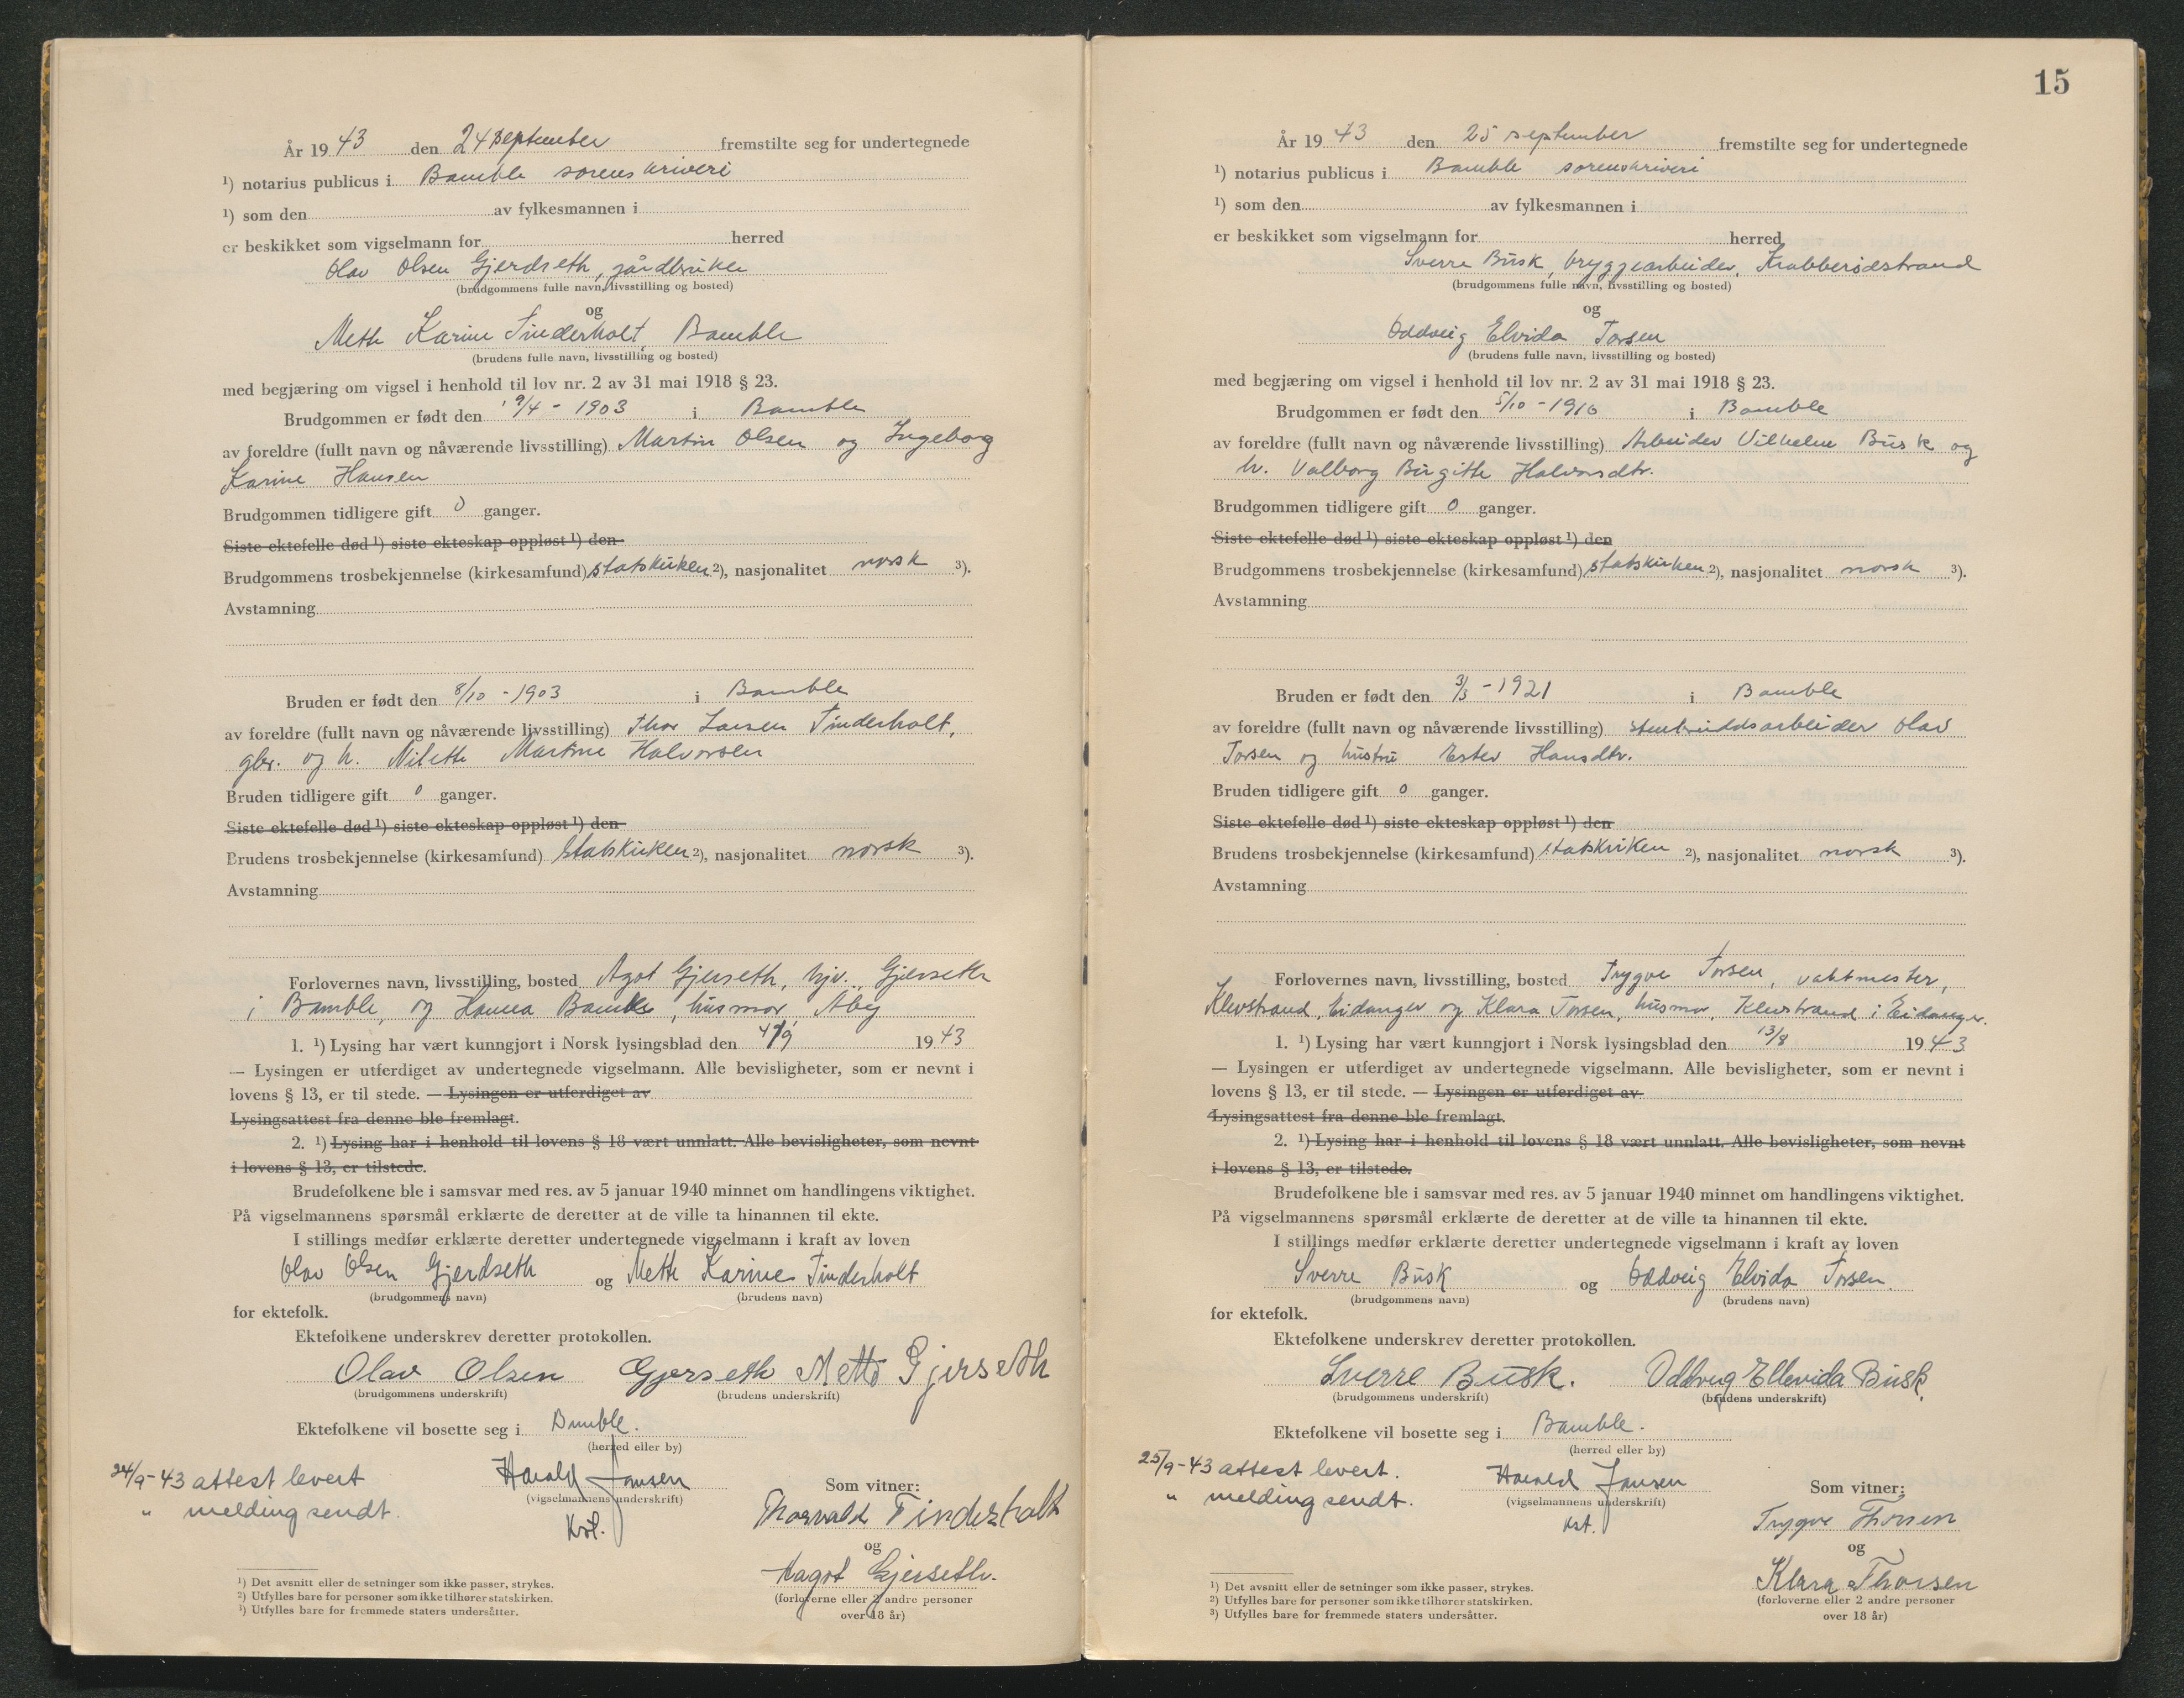 År 19 43 den 24 september fremstilte seg for undertegnede
¹) notarius publicus i Bamble sorenskriveri
¹) som den av fylkesmannen i
er beskikket som vigselmann for herred
Olav Olsen Gjerdseth, gårdbruker
(brudgommens fulle navn, livsstilling og bosted)
og
Mette Karine Tinderholt, Bamble
(brudens fulle navn, livsstilling og bosted)
med begjæring om vigsel i henhold til lov nr. 2 av 31 mai 1918 § 23.
Brudgommen er født den 9/4 - 1903 i Bamble
av foreldre (fullt navn og nåværende livsstilling) Martin Olsen og Ingeborg
Karine Hansen
Brudgommen tidligere gift 0 ganger.
Siste ektefelle død ¹) siste ekteskap oppløst ¹) den
Brudgommens trosbekjennelse (kirkesamfund) statskirken ²), nasjonalitet norsk ³).
Avstamning
Bruden er født den 8/10 - 1903 i Bamble
av foreldre (fullt navn og nåværende livsstilling) Thor Larsen Tinderholt,
gbr. og h. Nilette Martine Halvorsen
Bruden tidligere gift 0 ganger.
Siste ektefelle død ¹) siste ekteskap oppløst ¹) den
Brudens trosbekjennelse (kirkesamfund) Statskirken ²), nasjonalitet norsk ³).
Avstamning
Forlovernes navn, livsstilling, bosted Agot Gjerseth, hjv., Gjerseth
i Bamble, og Hanna Bamle, husmor, Åby
1. ¹) Lysing har vært kunngjort i Norsk lysingsblad den 4/9 19 43
— Lysingen er utferdiget av undertegnede vigselmann. Alle bevisligheter, som er nevnt i
lovens § 13, er til stede. — Lysingen er utferdiget av
Lysingsattest fra denne ble fremlagt.
2. ¹) Lysing har i henhold til lovens § 18 vært unnlatt. Alle bevisligheter, som nevnt
i lovens § 13, er tilstede.
Brudefolkene ble i samsvar med res. av 5 januar 1940 minnet om handlingens viktighet.
På vigselmannens spørsmål erklærte de deretter at de ville ta hinannen til ekte.
I stillings medfør erklærte deretter undertegnede vigselmann i kraft av loven
Olav Olsen Gjerdseth og Mette Karine Tinderholt
(brudgommens navn) (brudens navn)
for ektefolk.
Ektefolkene underskrev deretter protokollen.
Olav Olsen Gjerseth Mette Gjerseth
(brudgommens underskrift) (brudens underskrift)
Ektefolkene vil bosette seg i Bamble.
(herred eller by)
24/9-43 attest levert
" melding sendt.
Harald Jansen
(vigselmannens underskrift)
Kst.
Som vitner:
Thorvald Tinderholt
og
Aagot Gjerseth.
(forloverne eller 2 andre personer
over 18 år)
¹) Det avsnitt eller de setninger som ikke passer, strykes.
²) Utfylles bare for personer som ikke tilhører statskirken.
³) Utfylles bare for fremmede staters undersåtter.
15
År 19 43 den 25 september fremstilte seg for undertegnede
¹) notarius publicus i Bamble sorenskriveri
¹) som den av fylkesmannen i
er beskikket som vigselmann for herred
Sverre Busk, bryggearbeider, Krabberødstrand
(brudgommens fulle navn, livsstilling og bosted)
og
Oddveig Elvida Torsen
(brudens fulle navn, livsstilling og bosted)
med begjæring om vigsel i henhold til lov nr. 2 av 31 mai 1918 § 23.
Brudgommen er født den 5/10 - 1916 i Bamble
av foreldre (fullt navn og nåværende livsstilling) Arbeider Vilhelm Busk og
h. Valborg Birgitte Halvorsdtr.
Brudgommen tidligere gift 0 ganger.
Siste ektefelle død ¹) siste ekteskap oppløst ¹) den
Brudgommens trosbekjennelse (kirkesamfund) statskirken ²), nasjonalitet norsk ³).
Avstamning
Bruden er født den 3/3 - 1921 i Bamble
av foreldre (fullt navn og nåværende livsstilling) stenbruddsarbeider Olav
Torsen og hustru Ester Hansdtr.
Bruden tidligere gift 0 ganger.
Siste ektefelle død ¹) siste ekteskap oppløst ¹) den
Brudens trosbekjennelse (kirkesamfund) statskirken ²), nasjonalitet norsk ³).
Avstamning
Forlovernes navn, livsstilling, bosted Trygve Torsen, vaktmester,
Klevstrand, Eidanger og Klara Torsen, husmor, Klevstrand i Eidanger.
1. ¹) Lysing har vært kunngjort i Norsk lysingsblad den 13/8 19 43
— Lysingen er utferdiget av undertegnede vigselmann. Alle bevisligheter, som er nevnt i
lovens § 13, er til stede. — Lysingen er utferdiget av
Lysingsattest fra denne ble fremlagt.
2. ¹) Lysing har i henhold til lovens § 18 vært unnlatt. Alle bevisligheter, som nevnt
i lovens § 13, er tilstede.
Brudefolkene ble i samsvar med res. av 5 januar 1940 minnet om handlingens viktighet.
På vigselmannens spørsmål erklærte de deretter at de ville ta hinannen til ekte.
I stillings medfør erklærte deretter undertegnede vigselmann i kraft av loven
Sverre Busk og Oddveig Elvida Torsen.
(brudgommens navn) (brudens navn)
for ektefolk.
Ektefolkene underskrev deretter protokollen.
Sverre Busk. Oddveig Ellevida Busk.
(brudgommens underskrift) (brudens underskrift)
Ektefolkene vil bosette seg i Bamble.
(herred eller by)
25/9-43 attest levert.
" melding sendt.
Harald Jansen
(vigselmannens underskrift)
kst.
Som vitner:
Trygve Thorsen
og
Klara Thorsen
(forloverne eller 2 andre personer
over 18 år)
¹) Det avsnitt eller de setninger som ikke passer, strykes.
²) Utfylles bare for personer som ikke tilhører statskirken.
³) Utfylles bare for fremmede staters undersåtter.